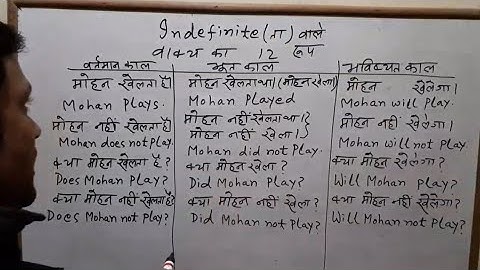 Indefinite (ता) वाले
वाक्य का 12 रूप
वर्तमान काल
मोहन खेलता है।
Mohan Plays.
मोहन नहीं खेलता है।
Mohan does not Play.
क्या मोहन खेलता है ?
Does Mohan Play?
क्या मोहन नहीं खेलता है?
Does Mohan not Play?
भूत काल
मोहन खेलता था। (मोहन खेला)
Mohan Played
मोहन नहीं खेलता था।
मोहन नहीं खेला।
Mohan did not Play.
क्या मोहन खेला ?
Did Mohan Play?
क्या मोहन नहीं खेला ?
Did Mohan not Play?
भविष्यत काल
मोहन खेलेगा।
Mohan will Play.
मोहन नहीं खेलेगा।
Mohan will not Play
क्या मोहन खेलेगा ?
Will Mohan Play?
क्या मोहन नहीं खेलेगा?
Will Mohan not Play?